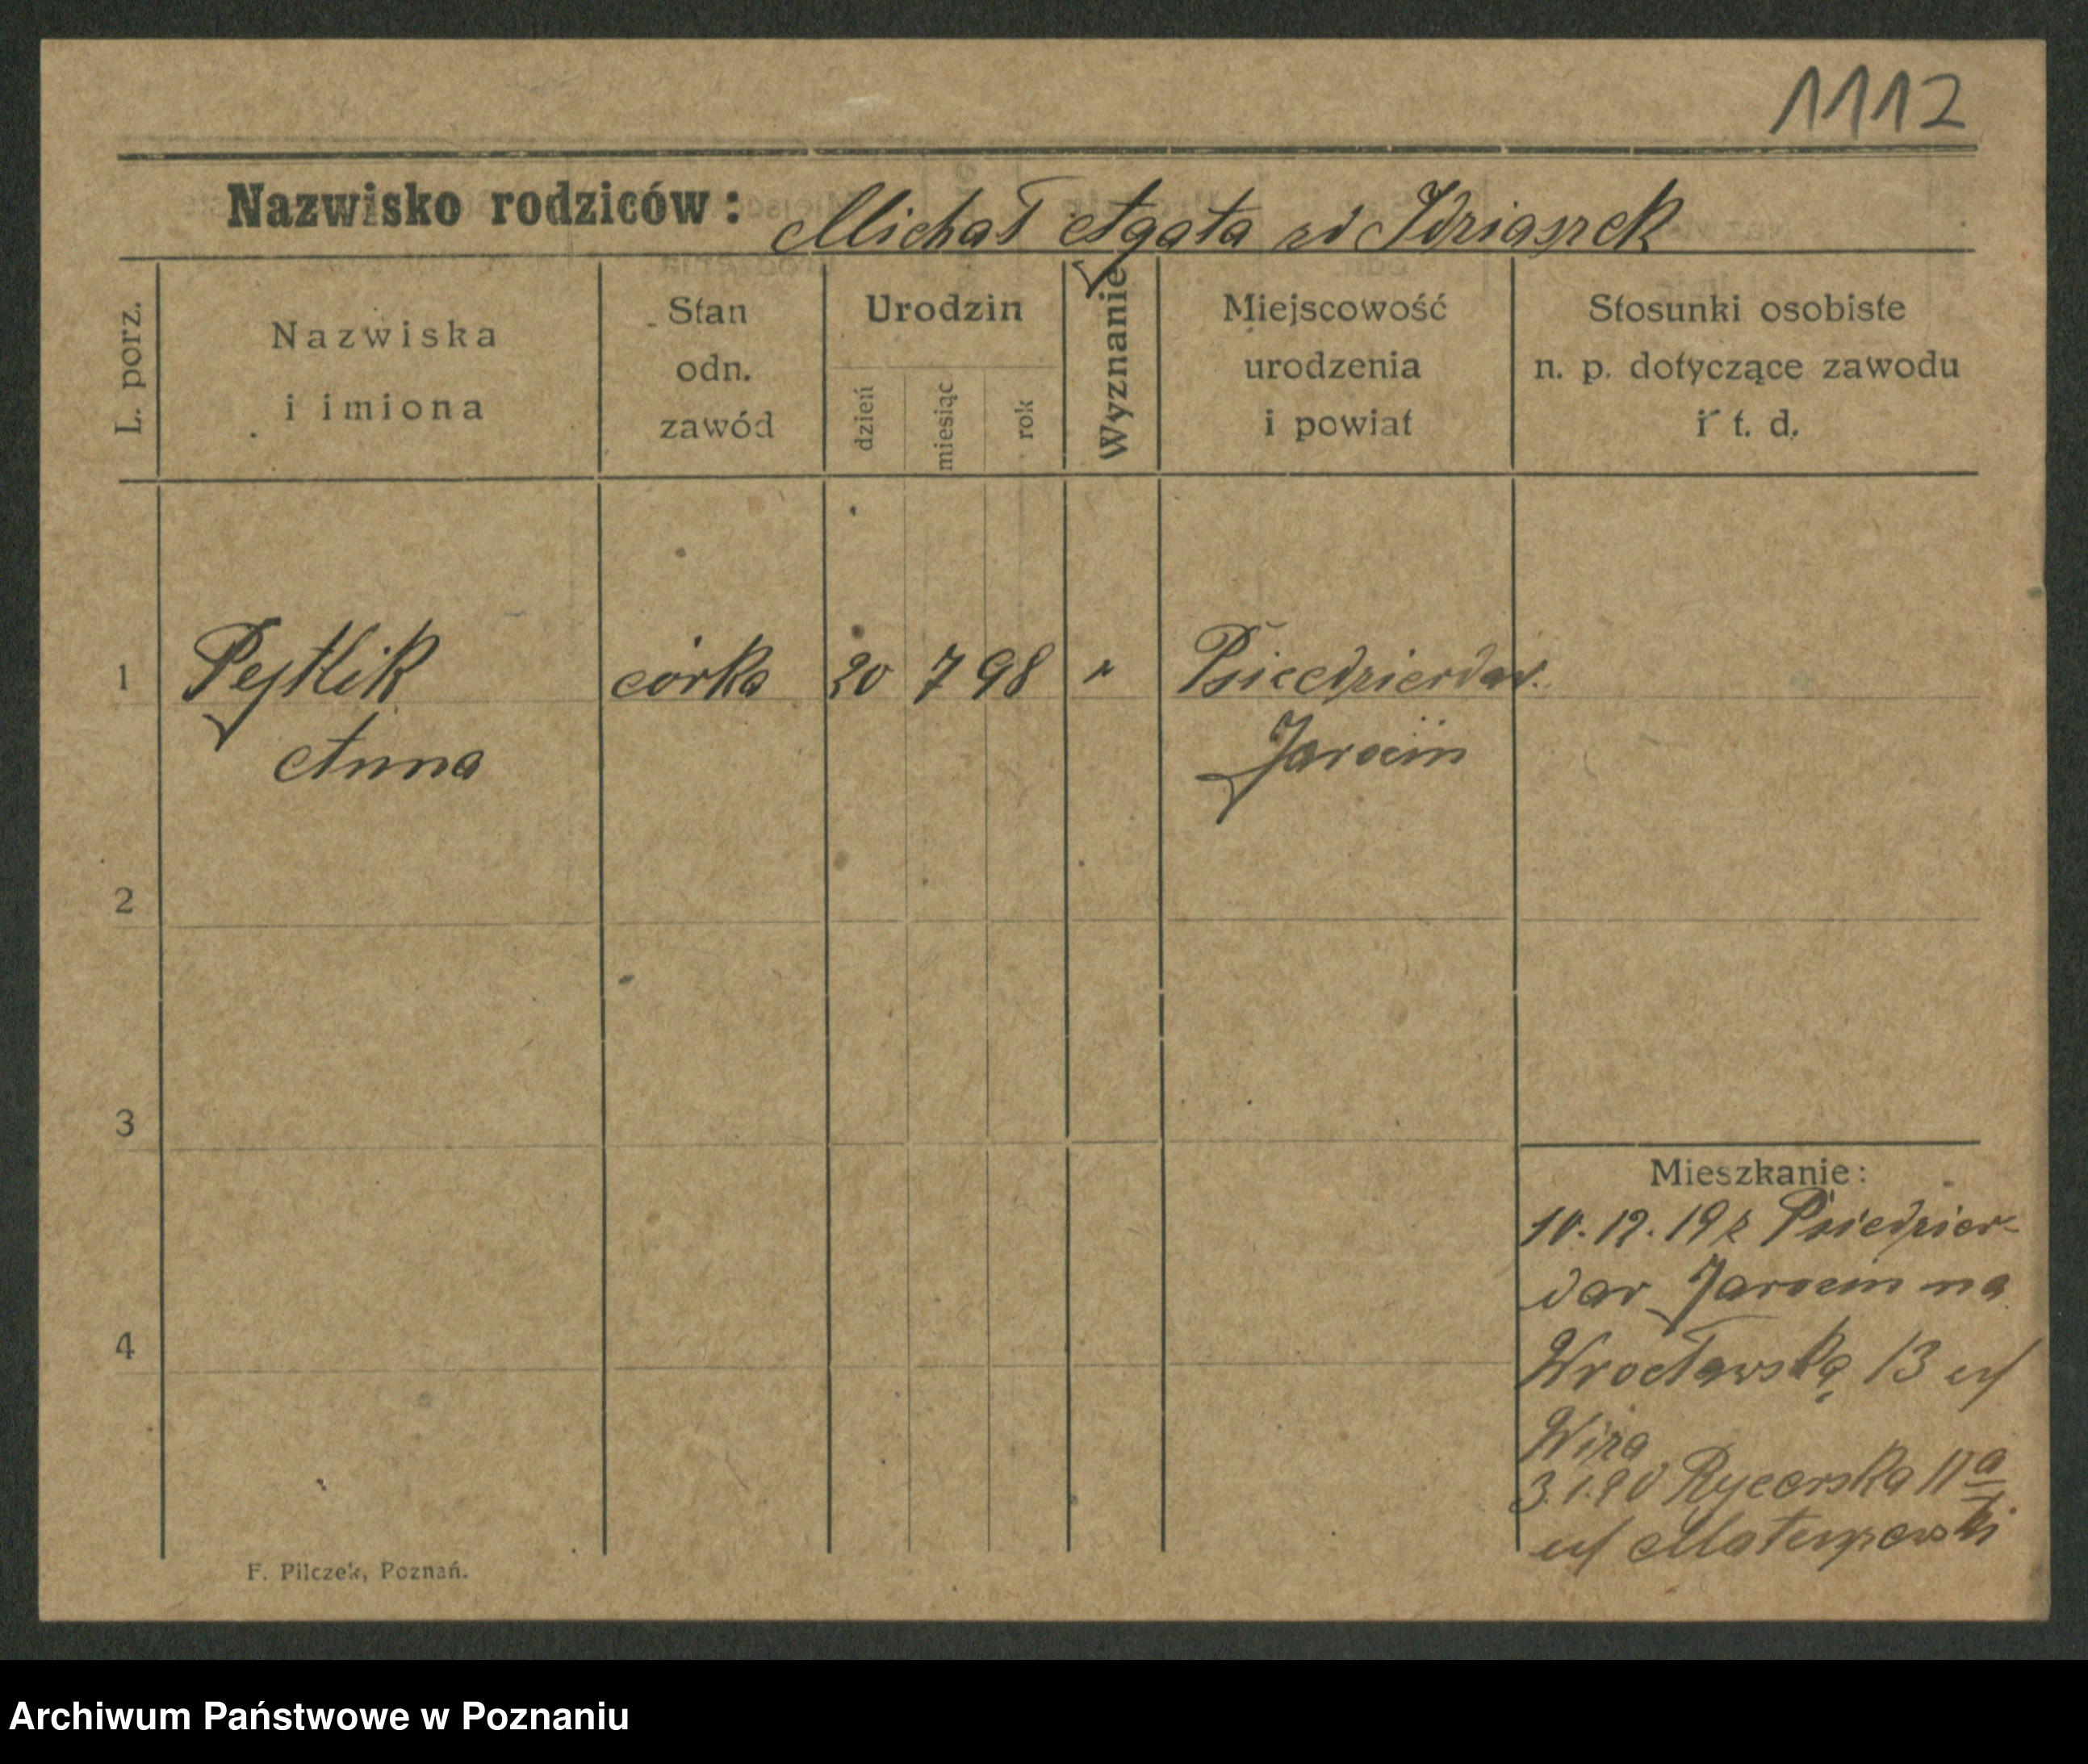 1112
Nazwisko rodziców: Michał Agata zd Idziaszek
L. porz.
Nazwiska
i imiona
Stan
odn.
zawód
Urodzin
dzień
miesiąc
rok
Wyznanie
Miejscowość
urodzenia
i powiat
Stosunki osobiste
n. p. dotyczące zawodu
i t. d.
1 Pejklik córka 20 7 98 " Psiedzierdar.
Anna Jarocin
2
3
4
Mieszkanie:
10.12.19 z Psiedzier-
dar Jarocin na
Wrocławską 13
Wiza
3.1.20 Rycerska 11a
F. Pilczek, Poznań.
Archiwum Państwowe w Poznaniu